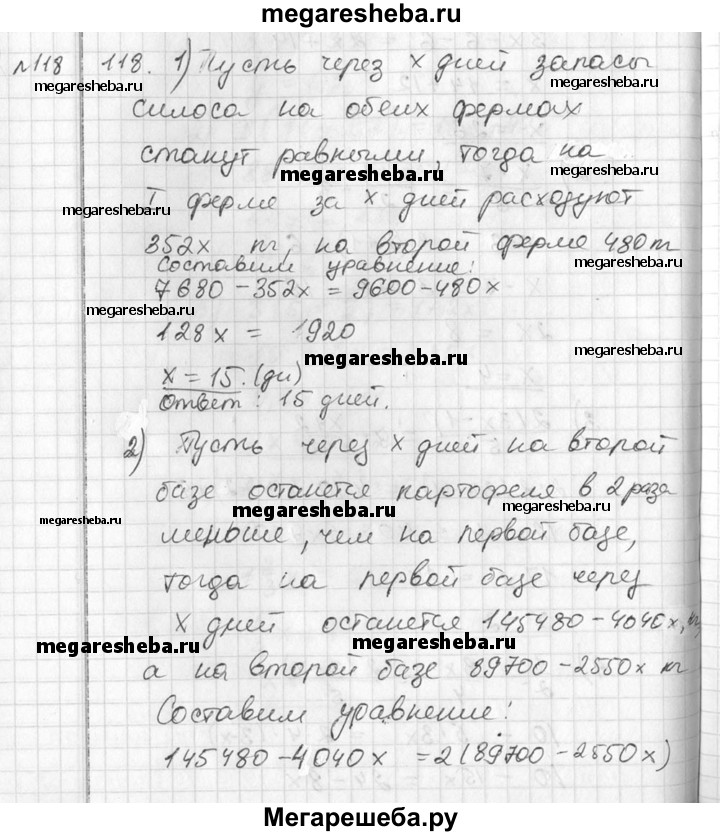 megaresheba.ru
№118 118. 1) Пусть через x дней запасы
megaresheba.ru megaresheba.ru
силоса на обеих фермах
станут равными, тогда на
megaresheba.ru megaresheba.ru
I ферме за x дней расходуют
megaresheba.ru
352x т, на второй ферме 480т
Составим уравнение:
megaresheba.ru
7680-352x = 9600-480x
megaresheba.ru
128x = 1920
megaresheba.ru megaresheba.ru
x = 15. (дн)
Ответ: 15 дней.
2) Пусть через x дней на второй
базе останется картофеля в 2 раза
megaresheba.ru megaresheba.ru megaresheba.ru
меньше, чем на первой базе,
тогда на первой базе через
x дней останется 145480-4040x, кг,
megaresheba.ru megaresheba.ru
а на второй базе 89700-2550x кг
Составим уравнение:
145480-4040x = 2(89700-2550x)
Мегарешеба.ру